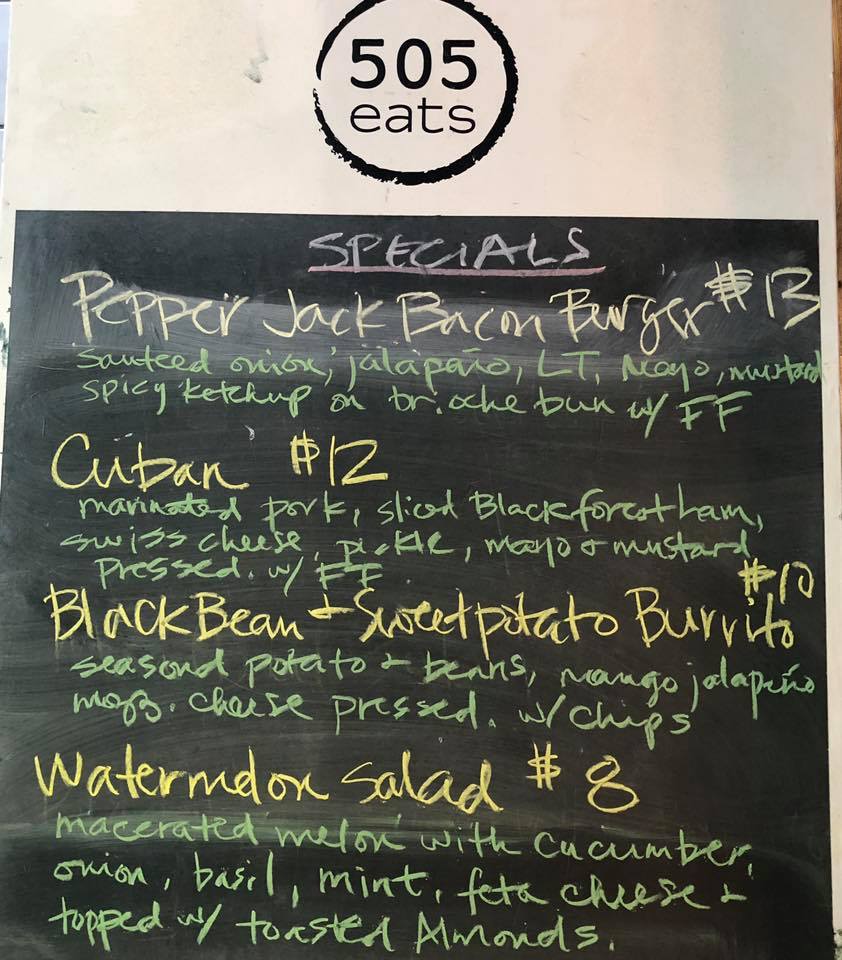 505
eats
SPECIALS
Pepper Jack Bacon Burger $13
sauteed onion, jalapaño, LT, mayo, mustard
spicy ketchup on brioche bun w/ FF
Cuban $12
marinated pork, sliced Blackforest ham,
swiss cheese, pickle, mayo + mustard
Pressed. w/ FF.
$10
Black Bean + Sweetpotato Burrito
seasond potato + beans, mango jalapeño
mozz. cheese pressed. w/ chips
Watermelon Salad $8
macerated melon with cucumber,
onion, basil, mint, feta cheese +
topped w/ toasted Almonds.